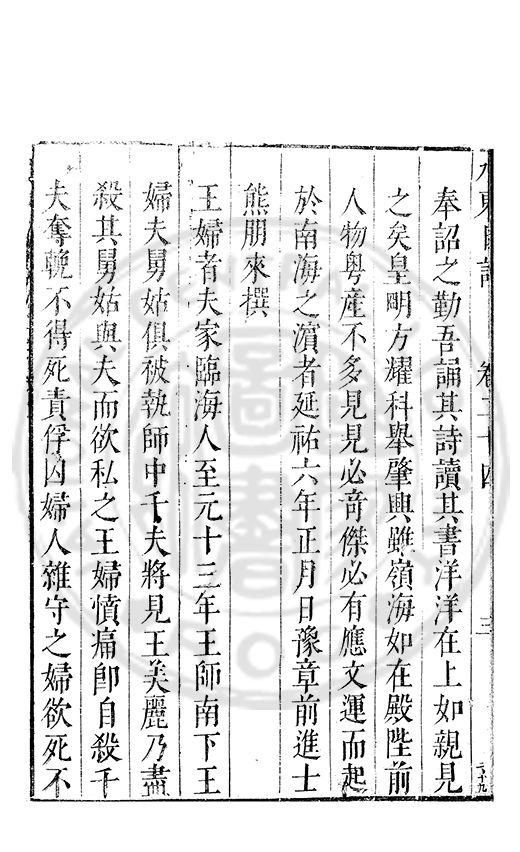 卷二十四
三
奉詔之勤吾誦其詩讀其書洋洋在上如親見
之矣皇明方耀科舉肇興雖嶺海如在殿陛前
人物粤產不多見見必奇傑必有應文運而起
於南海之濵者延祐六年正月日豫章前進士
熊朋來撰
王婦者夫家臨海人至元十三年王師南下王
婦夫舅姑俱被執師中千夫將見王美麗乃盡
殺其舅姑與夫而欲私之王婦憤痛卽自殺千
夫奪輓不得死責俘囚婦人雜守之婦欲死不